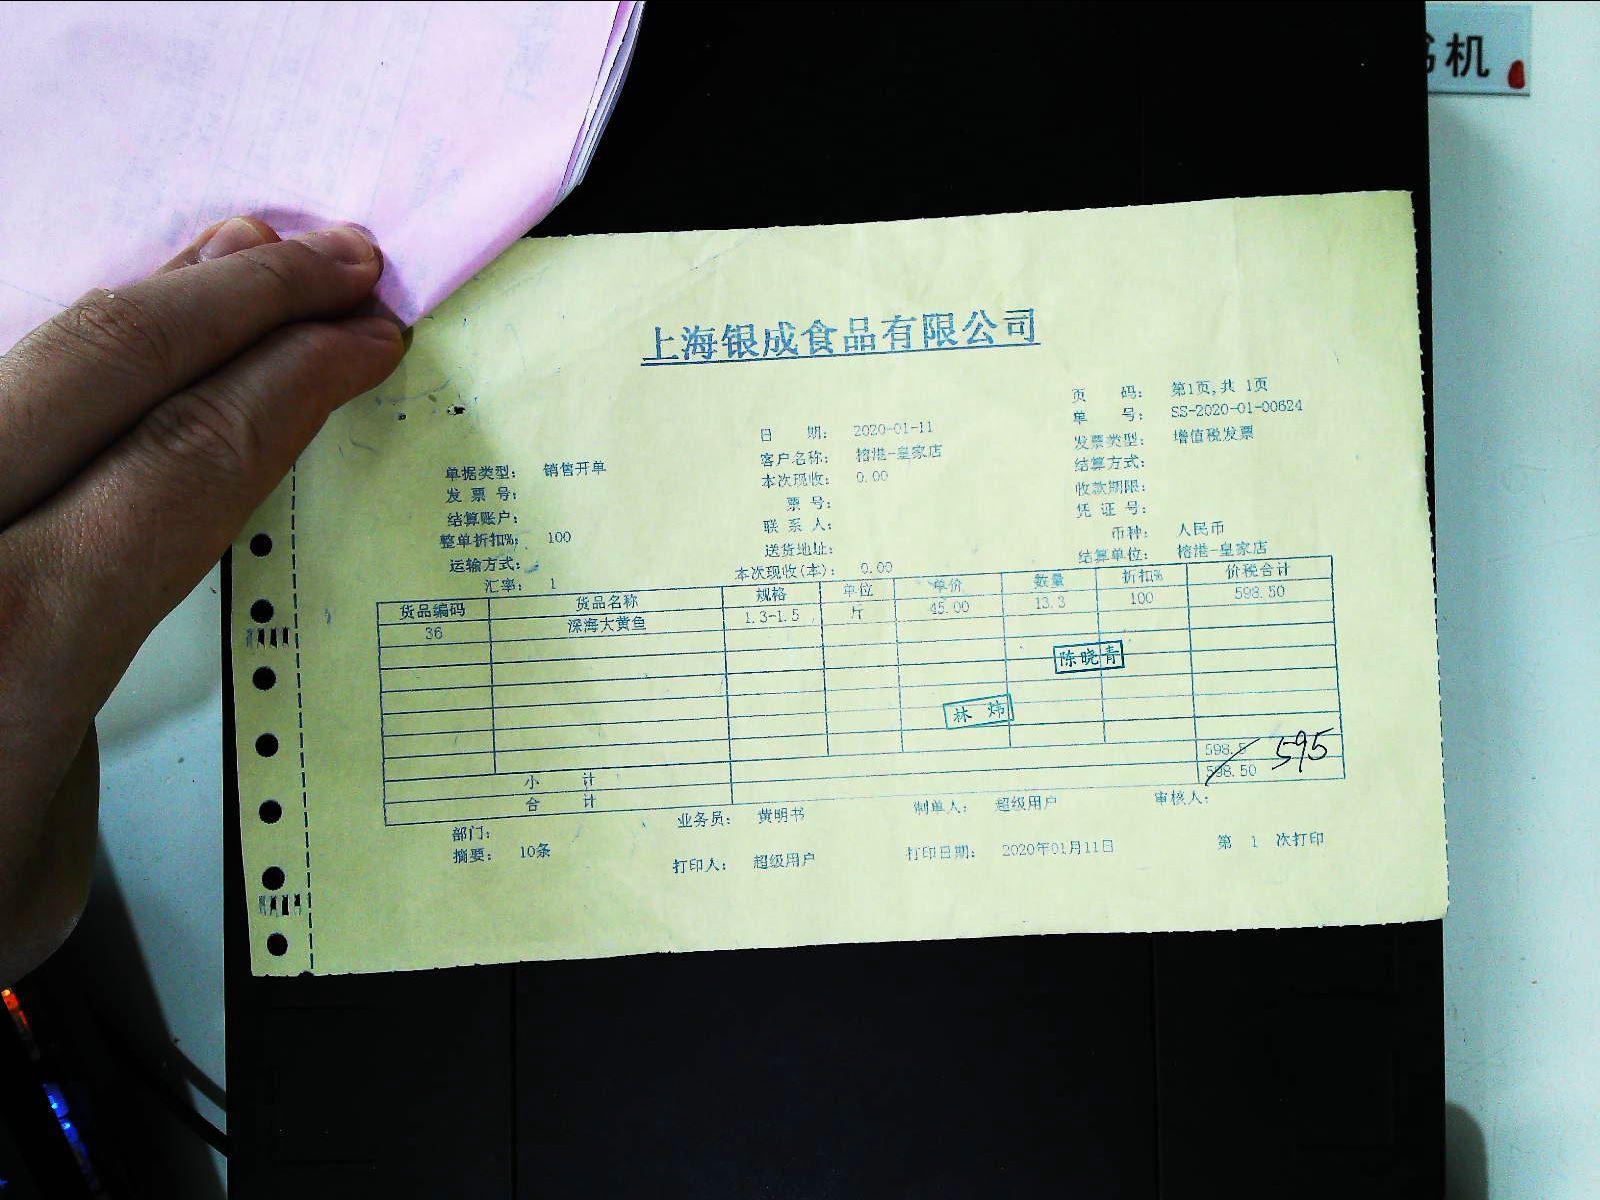 书机
上海银成食品有限公司
页 码: 第1页,共 1页
单 号: SS-2020-01-00624
日 期: 2020-01-11
发票类型: 增值税发票
单据类型: 销售开单
客户名称: 榕港-皇家店
结算方式:
发 票 号:
本次现收: 0.00
收款期限:
结算账户:
票 号:
凭 证 号:
整单折扣%: 100
联 系 人:
币种: 人民币
运输方式:
送货地址:
结算单位: 榕港-皇家店
汇率: 1
本次现收(本): 0.00
货品编码 货品名称 规格 单位 单价 数量 折扣% 价税合计
36 深海大黄鱼 1.3-1.5 斤 45.00 13.3 100 598.50
陈晓青
林 炜
小 计 598.5 595
合 计 598.50
部门: 业务员: 黄明书 制单人: 超级用户 审核人:
摘要: 10条 打印人: 超级用户 打印日期: 2020年01月11日 第 1 次打印